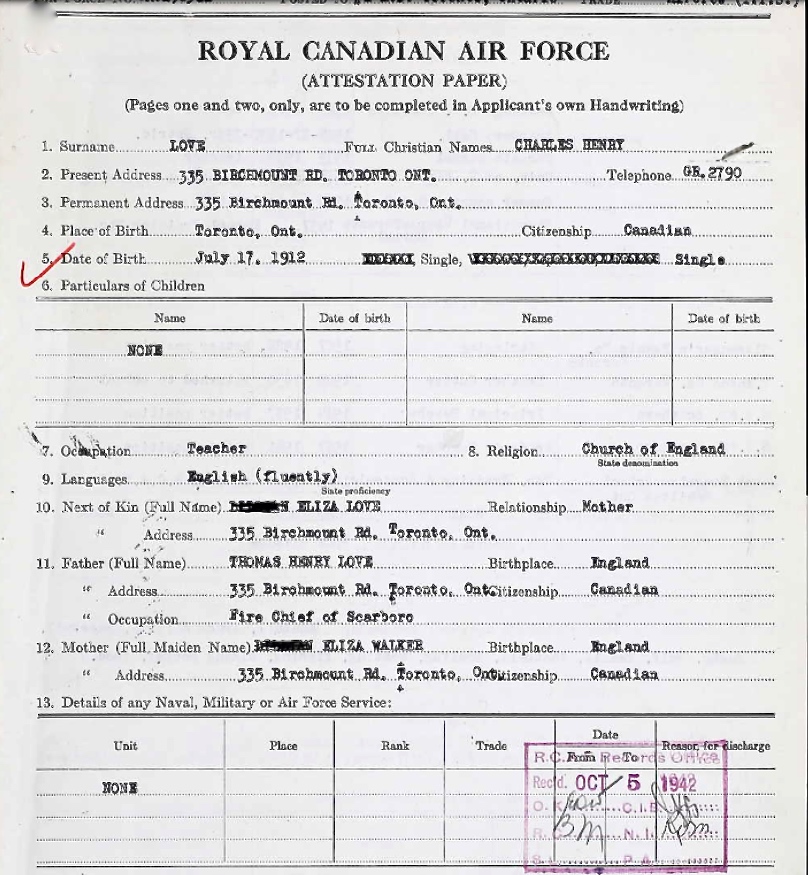 ROYAL CANADIAN AIR FORCE
(ATTESTATION PAPER)
(Pages one and two, only, are to be completed in Applicant's own Handwriting)
1. Surname LOVE Full Christian Names CHARLES HENRY
2. Present Address 335 BIRCHMOUNT RD. TORONTO ONT. Telephone GR.2790
3. Permanent Address 335 Birchmount Rd. Toronto, Ont.
4. Place of Birth Toronto, Ont. Citizenship Canadian
5. Date of Birth July 17, 1912 Single, Single
6. Particulars of Children
Name Date of birth Name Date of birth
NONE
7. Occupation Teacher 8. Religion Church of England
State denomination
9. Languages English (fluently)
State proficiency
10. Next of Kin (Full Name) ELIZA LOVE Relationship Mother
" Address 335 Birchmount Rd. Toronto, Ont.
11. Father (Full Name) THOMAS HENRY LOVE Birthplace England
" Address 335 Birchmount Rd. Toronto, Ont. Citizenship Canadian
" Occupation Fire Chief of Scarboro
12. Mother (Full Maiden Name) ELIZA WALKER Birthplace England
" Address 335 Birchmount Rd. Toronto, Ont. Citizenship Canadian
13. Details of any Naval, Military or Air Force Service:
Date
Unit Place Rank Trade From To Reason for discharge
NONE
R.C. Records Office
Rec'd. OCT 5 1942
O. K. C.I.B.
R. N. I.
S. P. A.